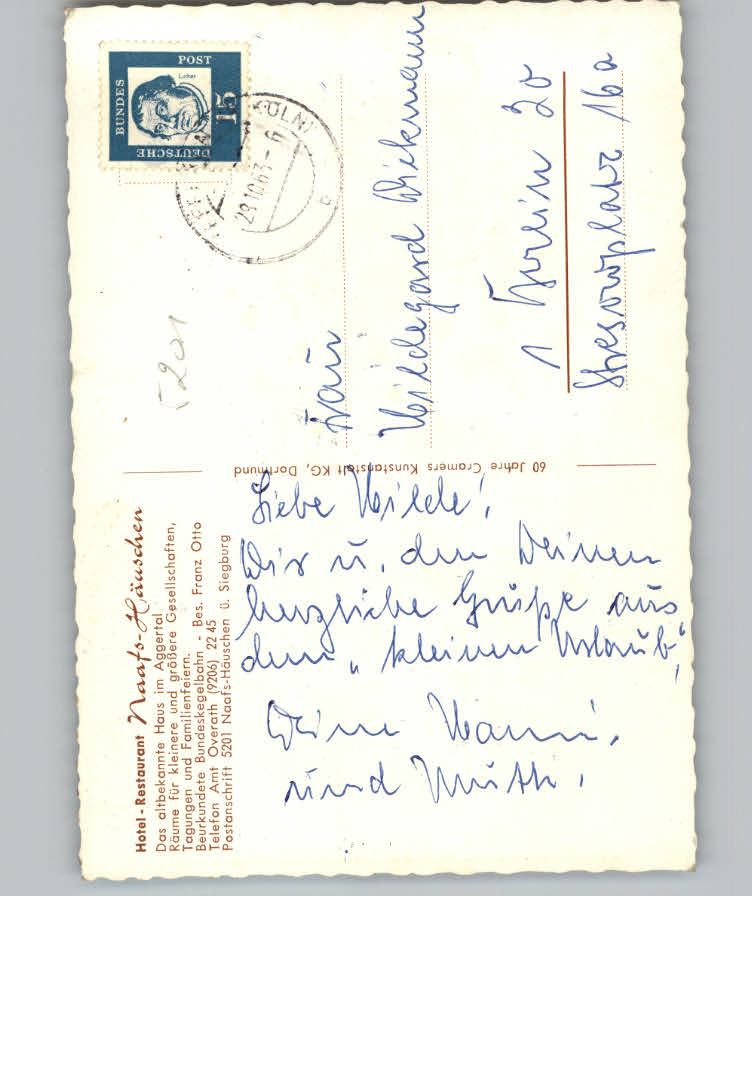 Hotel - Restaurant Naafs-Häuschen
Das altbekannte Haus im Aggertal
Räume für kleinere und größere Gesellschaften,
Tagungen und Familienfeiern.
Beurkundete Bundeskegelbahn - Bes. Franz Otto
Telefon Amt Overath (9206) 22 45
Postanschrift 5201 Naafs-Häuschen ü. Siegburg
Liebe Hilde!
Dir u. den Deinen
herzliche Grüße aus
dem „kleinen Urlaub",
Deine Hanni.
und
60 Jahre Cramers Kunstanstalt KG, Dortmund
DEUTSCHE BUNDESPOST
Luther
15
KÖLN)
29.10.63
5201
Frau
Hildegard Diekmann
1 Berlin 20
Stresowplatz 16a